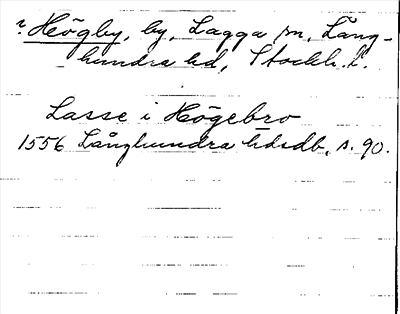 ? Högby, by, Lagga sn, Lång-
hundra hd, Stockh. l.
Lasse i Högebro
1556 Långhundra hdsdb, s. 90.